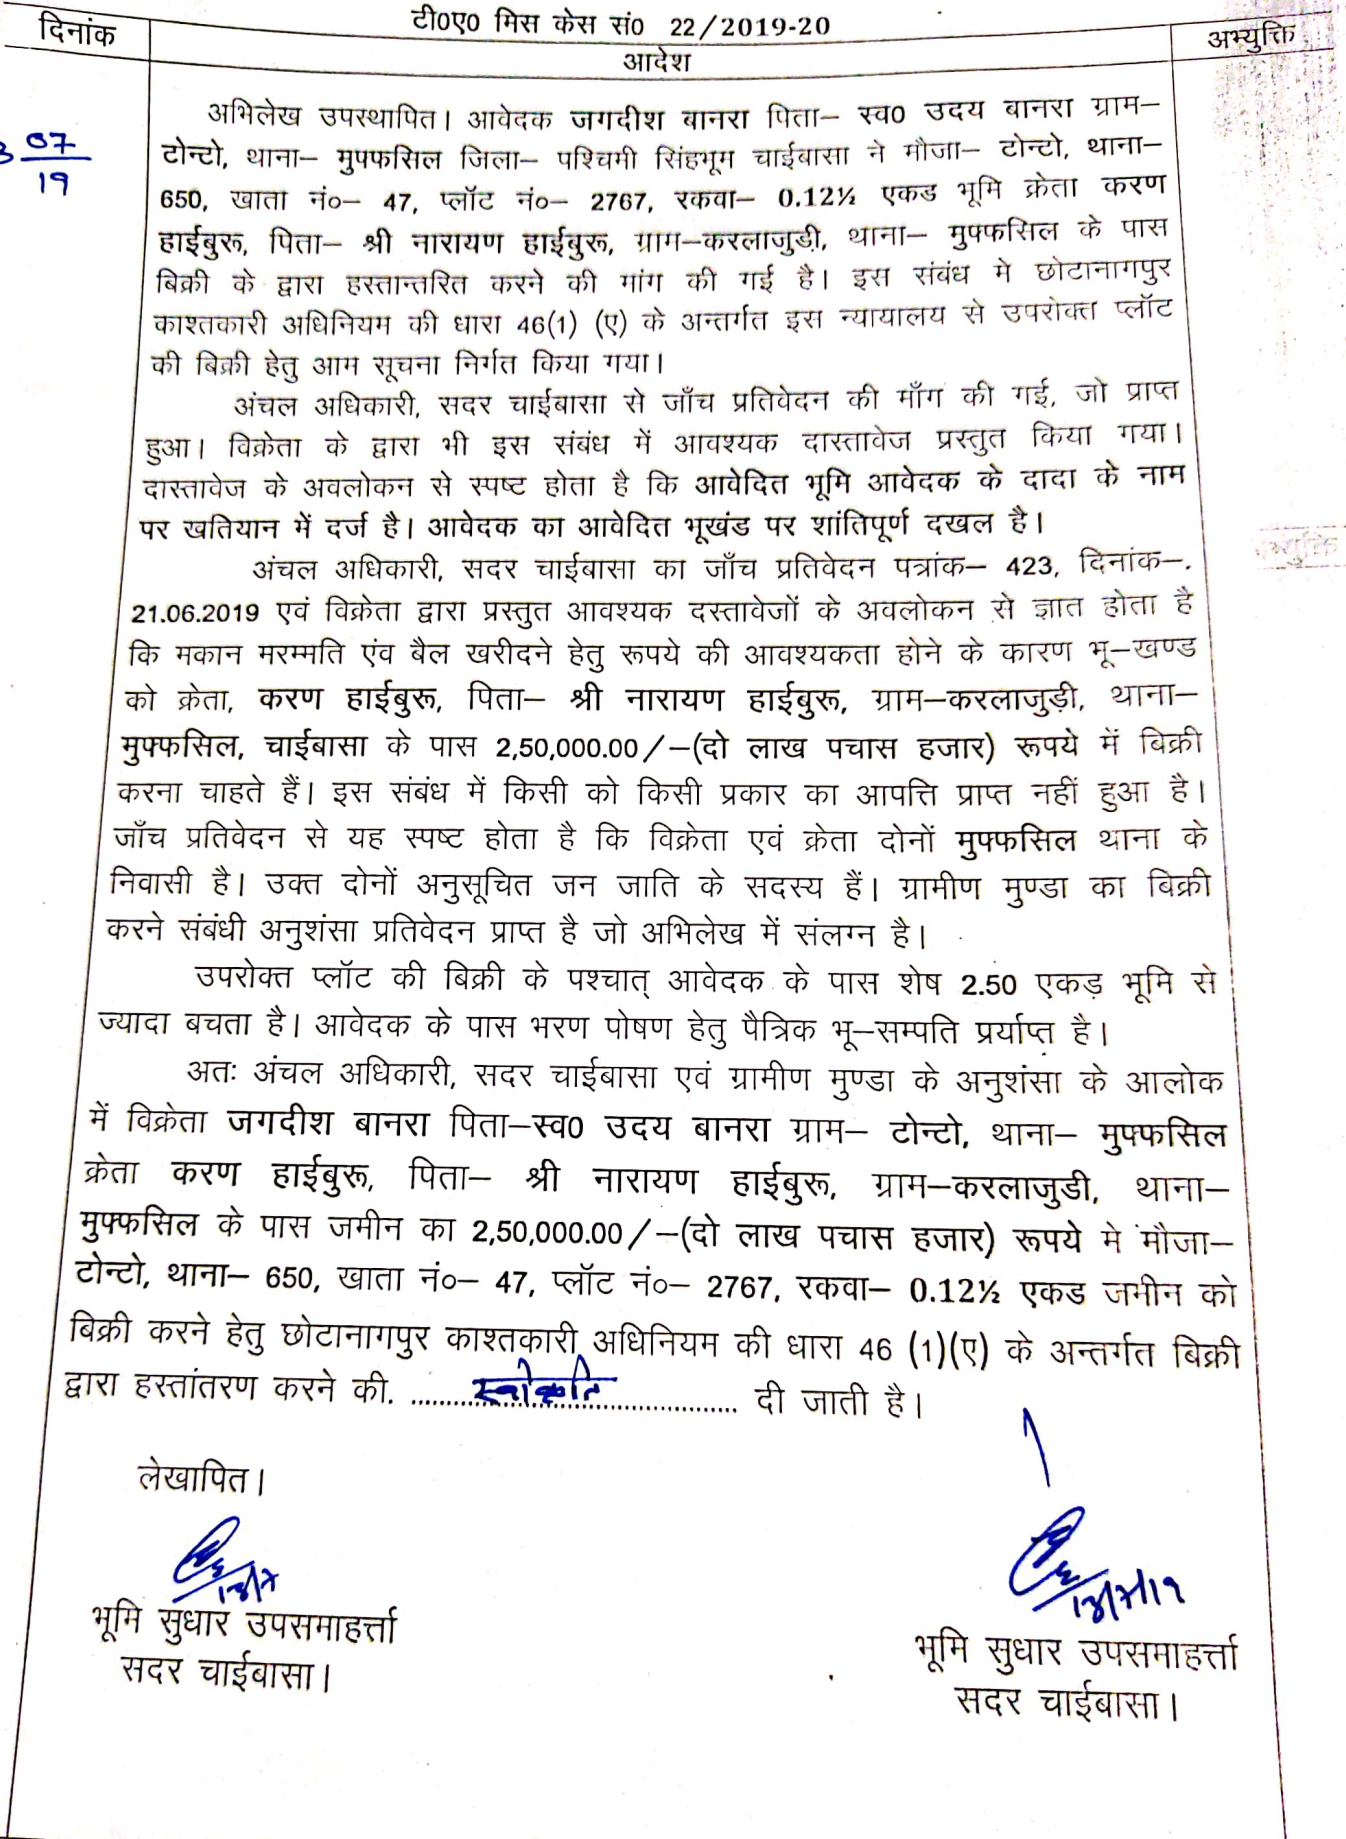 टी0ए0 मिस केस सं0 22/2019-20
दिनांक
आदेश
अभ्युक्ति
07
19
अभिलेख उपस्थापित। आवेदक जगदीश बानरा पिता– स्व0 उदय बानरा ग्राम–
टोन्टो, थाना– मुफ्फसिल जिला– पश्चिमी सिंहभूम चाईबासा ने मौजा– टोन्टो, थाना–
650, खाता नं०– 47, प्लॉट नं०– 2767, रकवा– 0.12½ एकड भूमि क्रेता करण
हाईबुरू, पिता– श्री नारायण हाईबुरू, ग्राम–करलाजुड़ी, थाना– मुफ्फसिल के पास
बिक्री के द्वारा हस्तान्तरित करने की मांग की गई है। इस संबंध मे छोटानागपुर
काश्तकारी अधिनियम की धारा 46(1) (ए) के अन्तर्गत इस न्यायालय से उपरोक्त प्लॉट
की बिक्री हेतु आम सूचना निर्गत किया गया।
अंचल अधिकारी, सदर चाईबासा से जाँच प्रतिवेदन की माँग की गई, जो प्राप्त
हुआ। विक्रेता के द्वारा भी इस संबंध में आवश्यक दास्तावेज प्रस्तुत किया गया।
दास्तावेज के अवलोकन से स्पष्ट होता है कि आवेदित भूमि आवेदक के दादा के नाम
पर खतियान में दर्ज है। आवेदक का आवेदित भूखंड पर शांतिपूर्ण दखल है।
अंचल अधिकारी, सदर चाईबासा का जाँच प्रतिवेदन पत्रांक– 423, दिनांक–.
21.06.2019 एवं विक्रेता द्वारा प्रस्तुत आवश्यक दस्तावेजों के अवलोकन से ज्ञात होता है
कि मकान मरम्मति एंव बैल खरीदने हेतु रूपये की आवश्यकता होने के कारण भू–खण्ड
को क्रेता, करण हाईबुरू, पिता– श्री नारायण हाईबुरू, ग्राम–करलाजुड़ी, थाना–
मुफ्फसिल, चाईबासा के पास 2,50,000.00/–(दो लाख पचास हजार) रूपये में बिक्री
करना चाहते हैं। इस संबंध में किसी को किसी प्रकार का आपत्ति प्राप्त नहीं हुआ है।
जाँच प्रतिवेदन से यह स्पष्ट होता है कि विक्रेता एवं क्रेता दोनों मुफ्फसिल थाना के
निवासी है। उक्त दोनों अनुसूचित जन जाति के सदस्य हैं। ग्रामीण मुण्डा का बिक्री
करने संबंधी अनुशंसा प्रतिवेदन प्राप्त है जो अभिलेख में संलग्न है।
उपरोक्त प्लॉट की बिक्री के पश्चात् आवेदक के पास शेष 2.50 एकड़ भूमि से
ज्यादा बचता है। आवेदक के पास भरण पोषण हेतु पैत्रिक भू–सम्पति प्रर्याप्त है।
अतः अंचल अधिकारी, सदर चाईबासा एवं ग्रामीण मुण्डा के अनुशंसा के आलोक
में विक्रेता जगदीश बानरा पिता–स्व0 उदय बानरा ग्राम– टोन्टो, थाना– मुफ्फसिल
क्रेता करण हाईबुरू, पिता– श्री नारायण हाईबुरू, ग्राम–करलाजुडी, थाना–
मुफ्फसिल के पास जमीन का 2,50,000.00/–(दो लाख पचास हजार) रूपये मे मौजा–
टोन्टो, थाना– 650, खाता नं०– 47, प्लॉट नं०– 2767, रकवा– 0.12½ एकड जमीन को
बिक्री करने हेतु छोटानागपुर काश्तकारी अधिनियम की धारा 46 (1)(ए) के अन्तर्गत बिक्री
द्वारा हस्तांतरण करने की. ........स्वीकृति........ दी जाती है।
लेखापित।
भूमि सुधार उपसमाहर्त्ता
सदर चाईबासा।
भूमि सुधार उपसमाहर्त्ता
सदर चाईबासा।